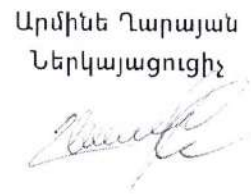 Արմինե Ղարայան
Ներկայացուցիչ